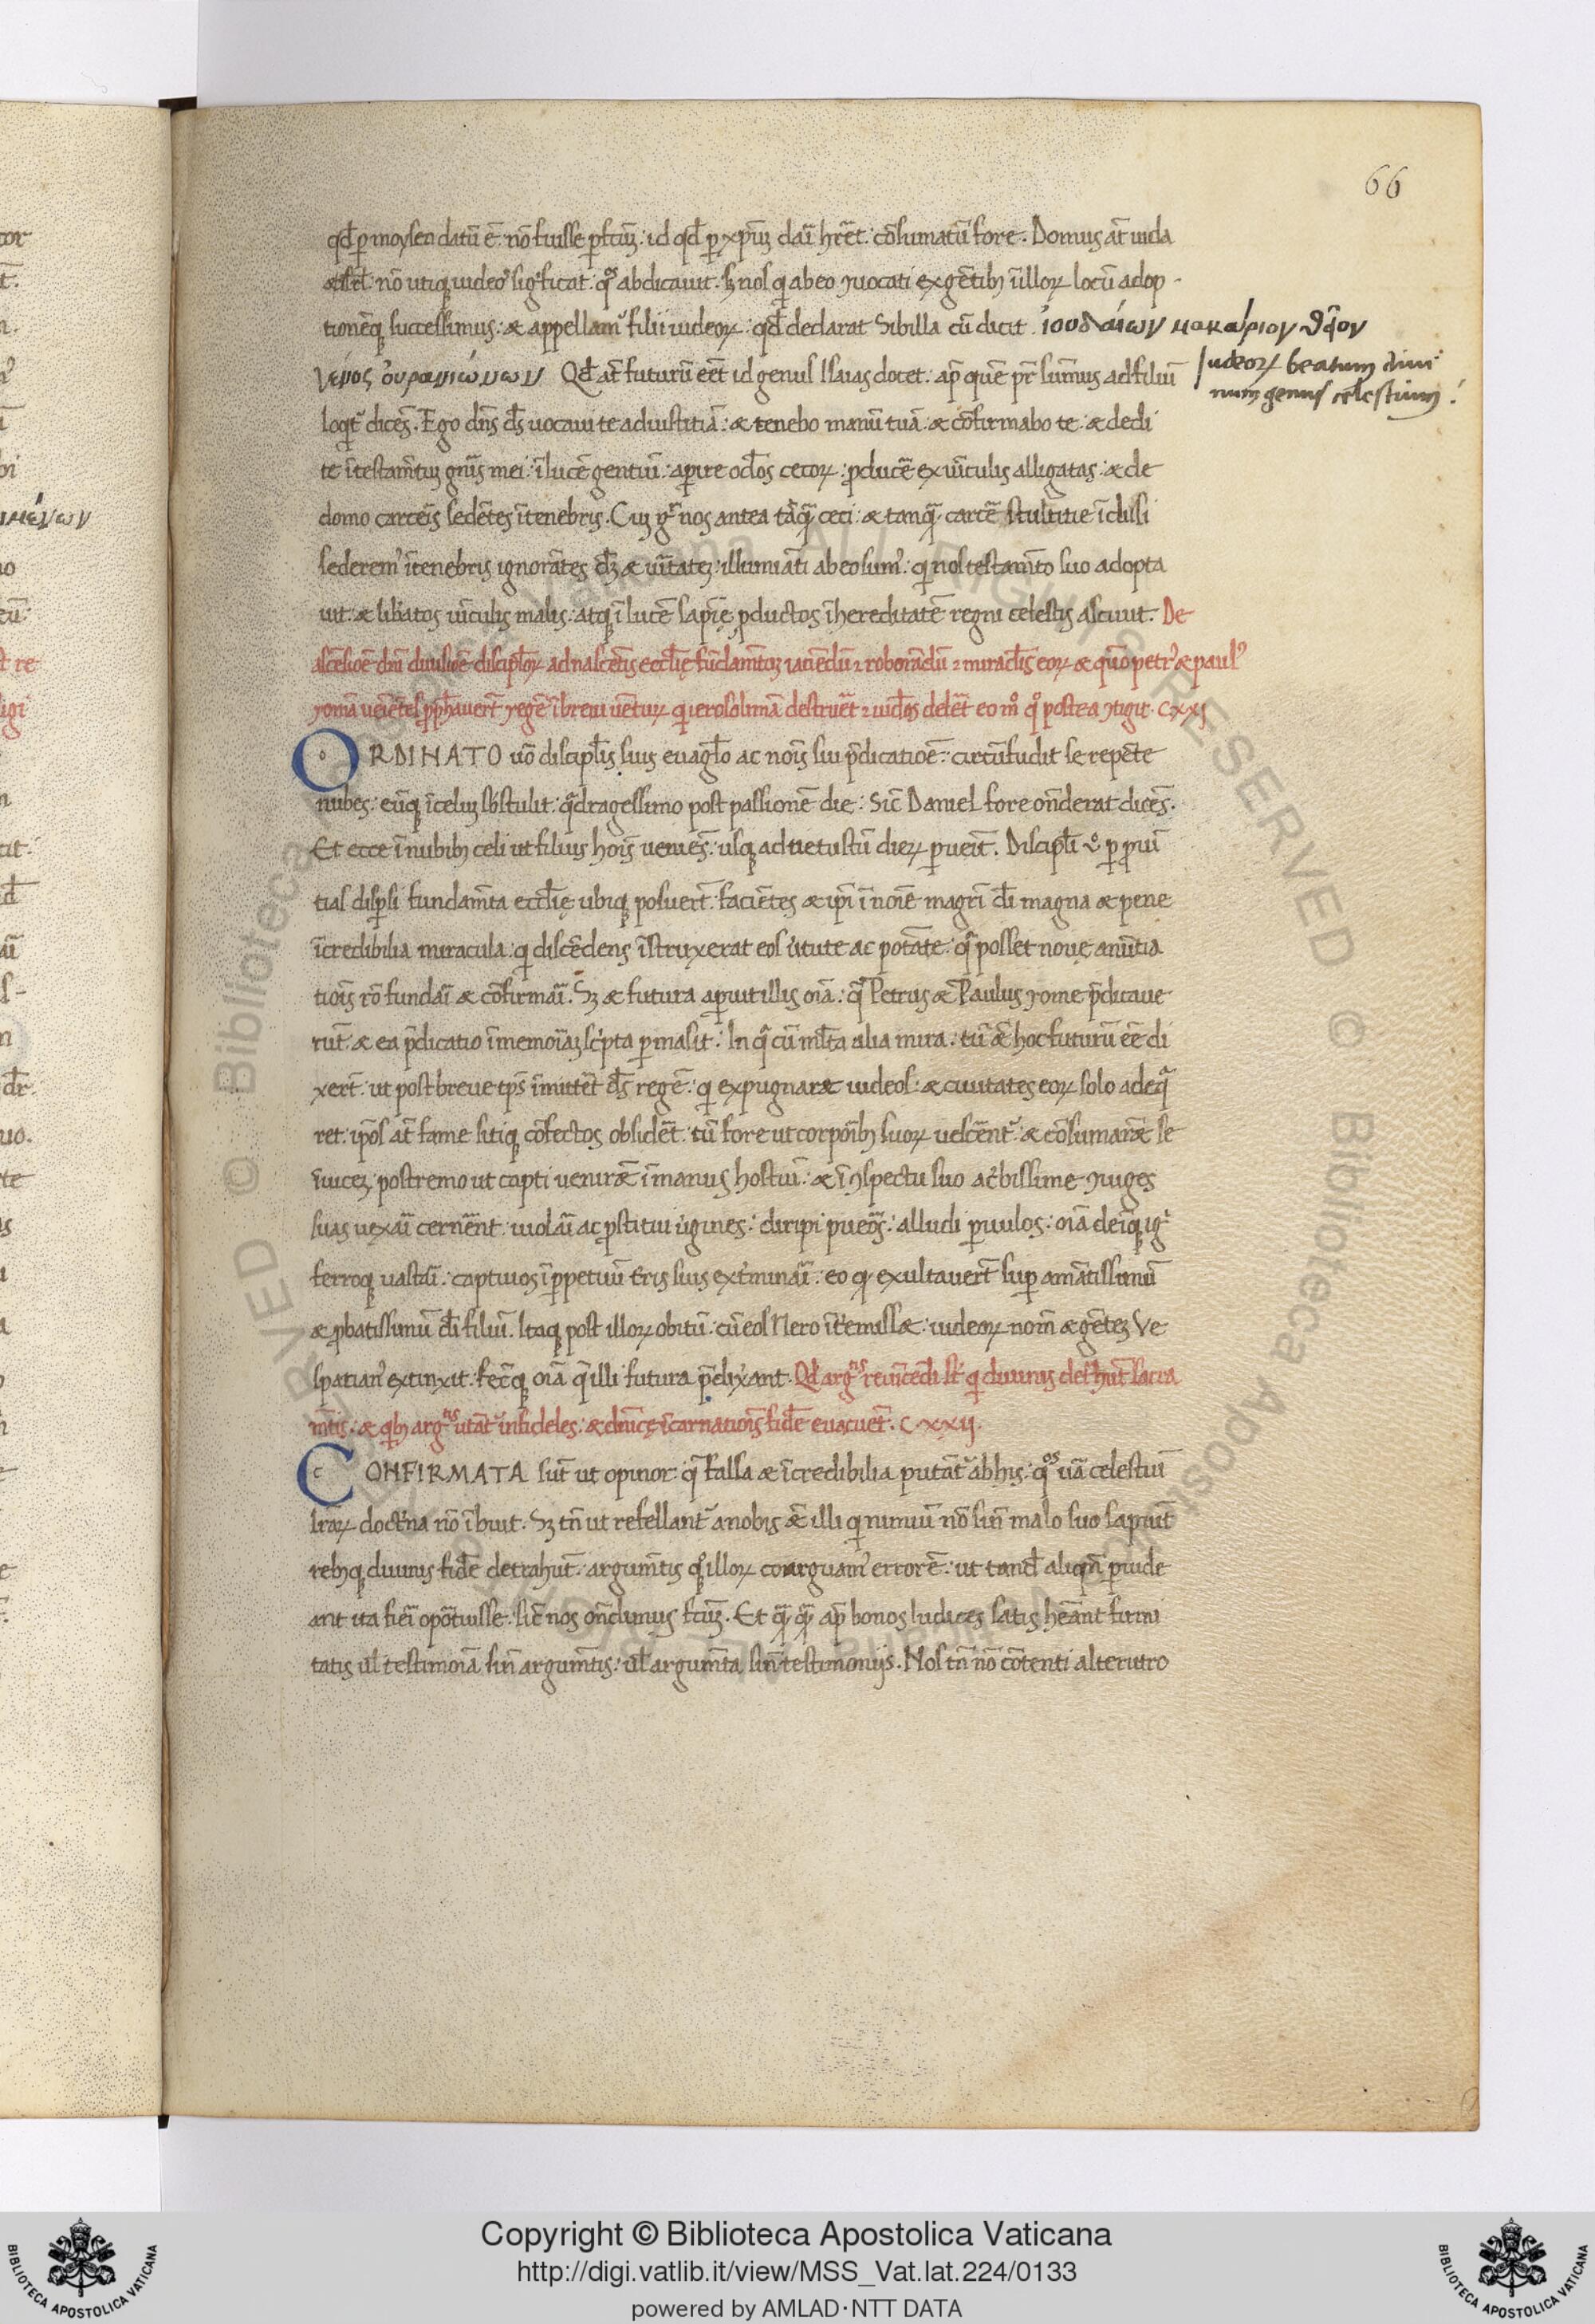 66
qd̄ ꝑ moysen datū ē: nō fuisse ꝑfcūꝫ: id qd̄ ꝑ xp̄uꝫ dari hr̄et: cōsumatū fore. Domus at̄ iuda
nō utiqꝫ iudeos sigͥficat: qͦs abdicauit: sꝫ nos qͥ ab eo ꝯuocati ex gētibꝫ ī illoꝝ locū adop-
tionēqꝫ successimus: & appellamͬ filii iudeoꝝ: qd̄ declarat Sibilla cū dicit ἰουδαίων μακαίριον θῆον
γένος οὐρανιώνων Qd̄ at̄ futurū eēt id genus Isaias docet: ap̄ quē pr̄ sum̄us ad filiū
Iudeoꝝ beatum diui
num genus celestium:
loqͥͬ dicēs. Ego dn̄s ds̄ uocaui te ad iustitiā: & tenebo manū tuā: & cōfirmabo te: & dedi
te ī testam̄tuꝫ gn̄is mei: ī lucē gentiū: aperire oclos cecoꝝ: ꝓducē ex uīculis alligatas: & de
domo carceris sedētes ī tenebris. Cuꝫ gͦ nos antea tāqͣꝫ ceci: & tanqͣꝫ carcē stultitie īclusi
sederemꝰ ī tenebris ignorātes dꝫ & uītateꝫ: illuminati ab eo sumꝰ: qͥ nos testam̄to suo adopta
uit: & lib̄atos uīculis malis: atqꝫ ī lucē sapīę ꝓductos ī hereditatē regni celestis asciuit. De
ascēsiōe dn̄i diuisiōe discipl̄oꝝ ad nascētis eccl̄ię fūdam̄tuꝫ iaciēdū ⁊ roborādū ⁊ miraclis eoꝝ & quō petrꝰ & paulꝰ
romā ueniētes ꝓph̄auer̄t regē ī breui uētuꝝ qͥ ierosolimā destruēt ⁊ iudeos delēt eo mͦ qͦ postea ꝯtigit. CXXI
ORDINATO uō discipl̄is suis euāgl̄io ac nois sui p̄dicatiōe: circūfudit se repēte
nubes: eūqꝫ ī celuꝫ sustulit: qͣdragessimo post passionē die: Sic̄ Daniel fore on̄derat dicēs.
Et ecce ī nubibꝫ celi ut filius hois ueniēs: usqꝫ ad uetustū dieꝝ ꝑueīt. Discipl̄i uͦ ꝑ ꝓuī
tias disꝑsi fundam̄ta eccl̄ię ubiqꝫ posuer̄t: faciētes & ip̄i ī noīe magr̄i dī magna & pene
īcredibilia miracula: qͥ discēdens īstruxerat eos uͥtute ac potāte: qͣ posset nouę anūtia
tiois rō fundari & cōfirmari. Sꝫ & futura aꝑuit illis oīa: qͣ Petrus & Paulus rome p̄dicaue
rūt: & ea p̄dicatio ī memoriaꝫ scͥpta ꝑmāsit: In qͣ cū ml̄ta alia mira: tū & hoc futurū eē di
xer̄t: ut post breue tp̄s īmittēt ds̄ regē: qͥ expugnaret iudeos: & ciuitates eoꝝ solo adeqͣ
ret: ip̄os at̄ fame sitiqꝫ cōfectos obsidēt: tū fore ut corꝑibꝫ suoꝝ uescētͬ: & cōsumarēt se
īuiceꝫ: postremo ut capti uenirēt ī manus hostiū: & ī ꝯspectu suo ac̄bissime ꝯiuges
suas uexari cernerēnt: uiolari ac ꝓstitui uͥgines: diripi pueros: allidi ꝑuulos: oīa deīqꝫ iḡ
ferroqꝫ uastari: captiuos ī ꝑpetuū tr̄is suis ext̄minari: eo qꝫ exultauer̄t suꝑ amātissimū
& ꝓbatissimū dī filiū. Itaqꝫ post illoꝝ obitū: cū eos Nero īt̄emisset: iudeoꝝ nom̄ & gēteꝫ Ve
spatianꝰ extinxit: fecītqꝫ oīa q̄ illi futura p̄dix̄ant. Qd̄ argͫͭⁱˢ reuīcēdi st̄ qͥ diuinis det̄hūt sacra
m̄tis: & qͥbꝫ argͫͭⁱˢ utātͬ infideles: & dn̄icę īcarnatiois fidē euacuēt. CXXII.
CONFIRMATA sūt ut opinor: q̄ falsa & īcredibilia putātͬ ab his: qͦs uā celestiū
lr̄aꝝ doctͥna nō ībuit. Sꝫ tn̄ ut refellantͬ a nobis & illi qͥ nimiū nō sin̄ malo suo sapiūt
rebꝫqꝫ diuinis fidē detrahūt: argum̄tis qͦqꝫ illoꝝ coarguamꝰ errorē: ut tand̄ aliqn̄ ꝑuide
ant ita fieri oportuisse: sic̄ nos on̄dimus fcūꝫ. Et qͣꝫ qͣꝫ ap̄ bonos iudices satis heānt firmi
tatis uł testimoīa sin̄ argum̄tis: uł argum̄ta sin̄ testimonijs. Nos tn̄ nō cōtenti alterutro
Copyright © Biblioteca Apostolica Vaticana
http://digi.vatlib.it/view/MSS_Vat.lat.224/0133
powered by AMLAD·NTT DATA